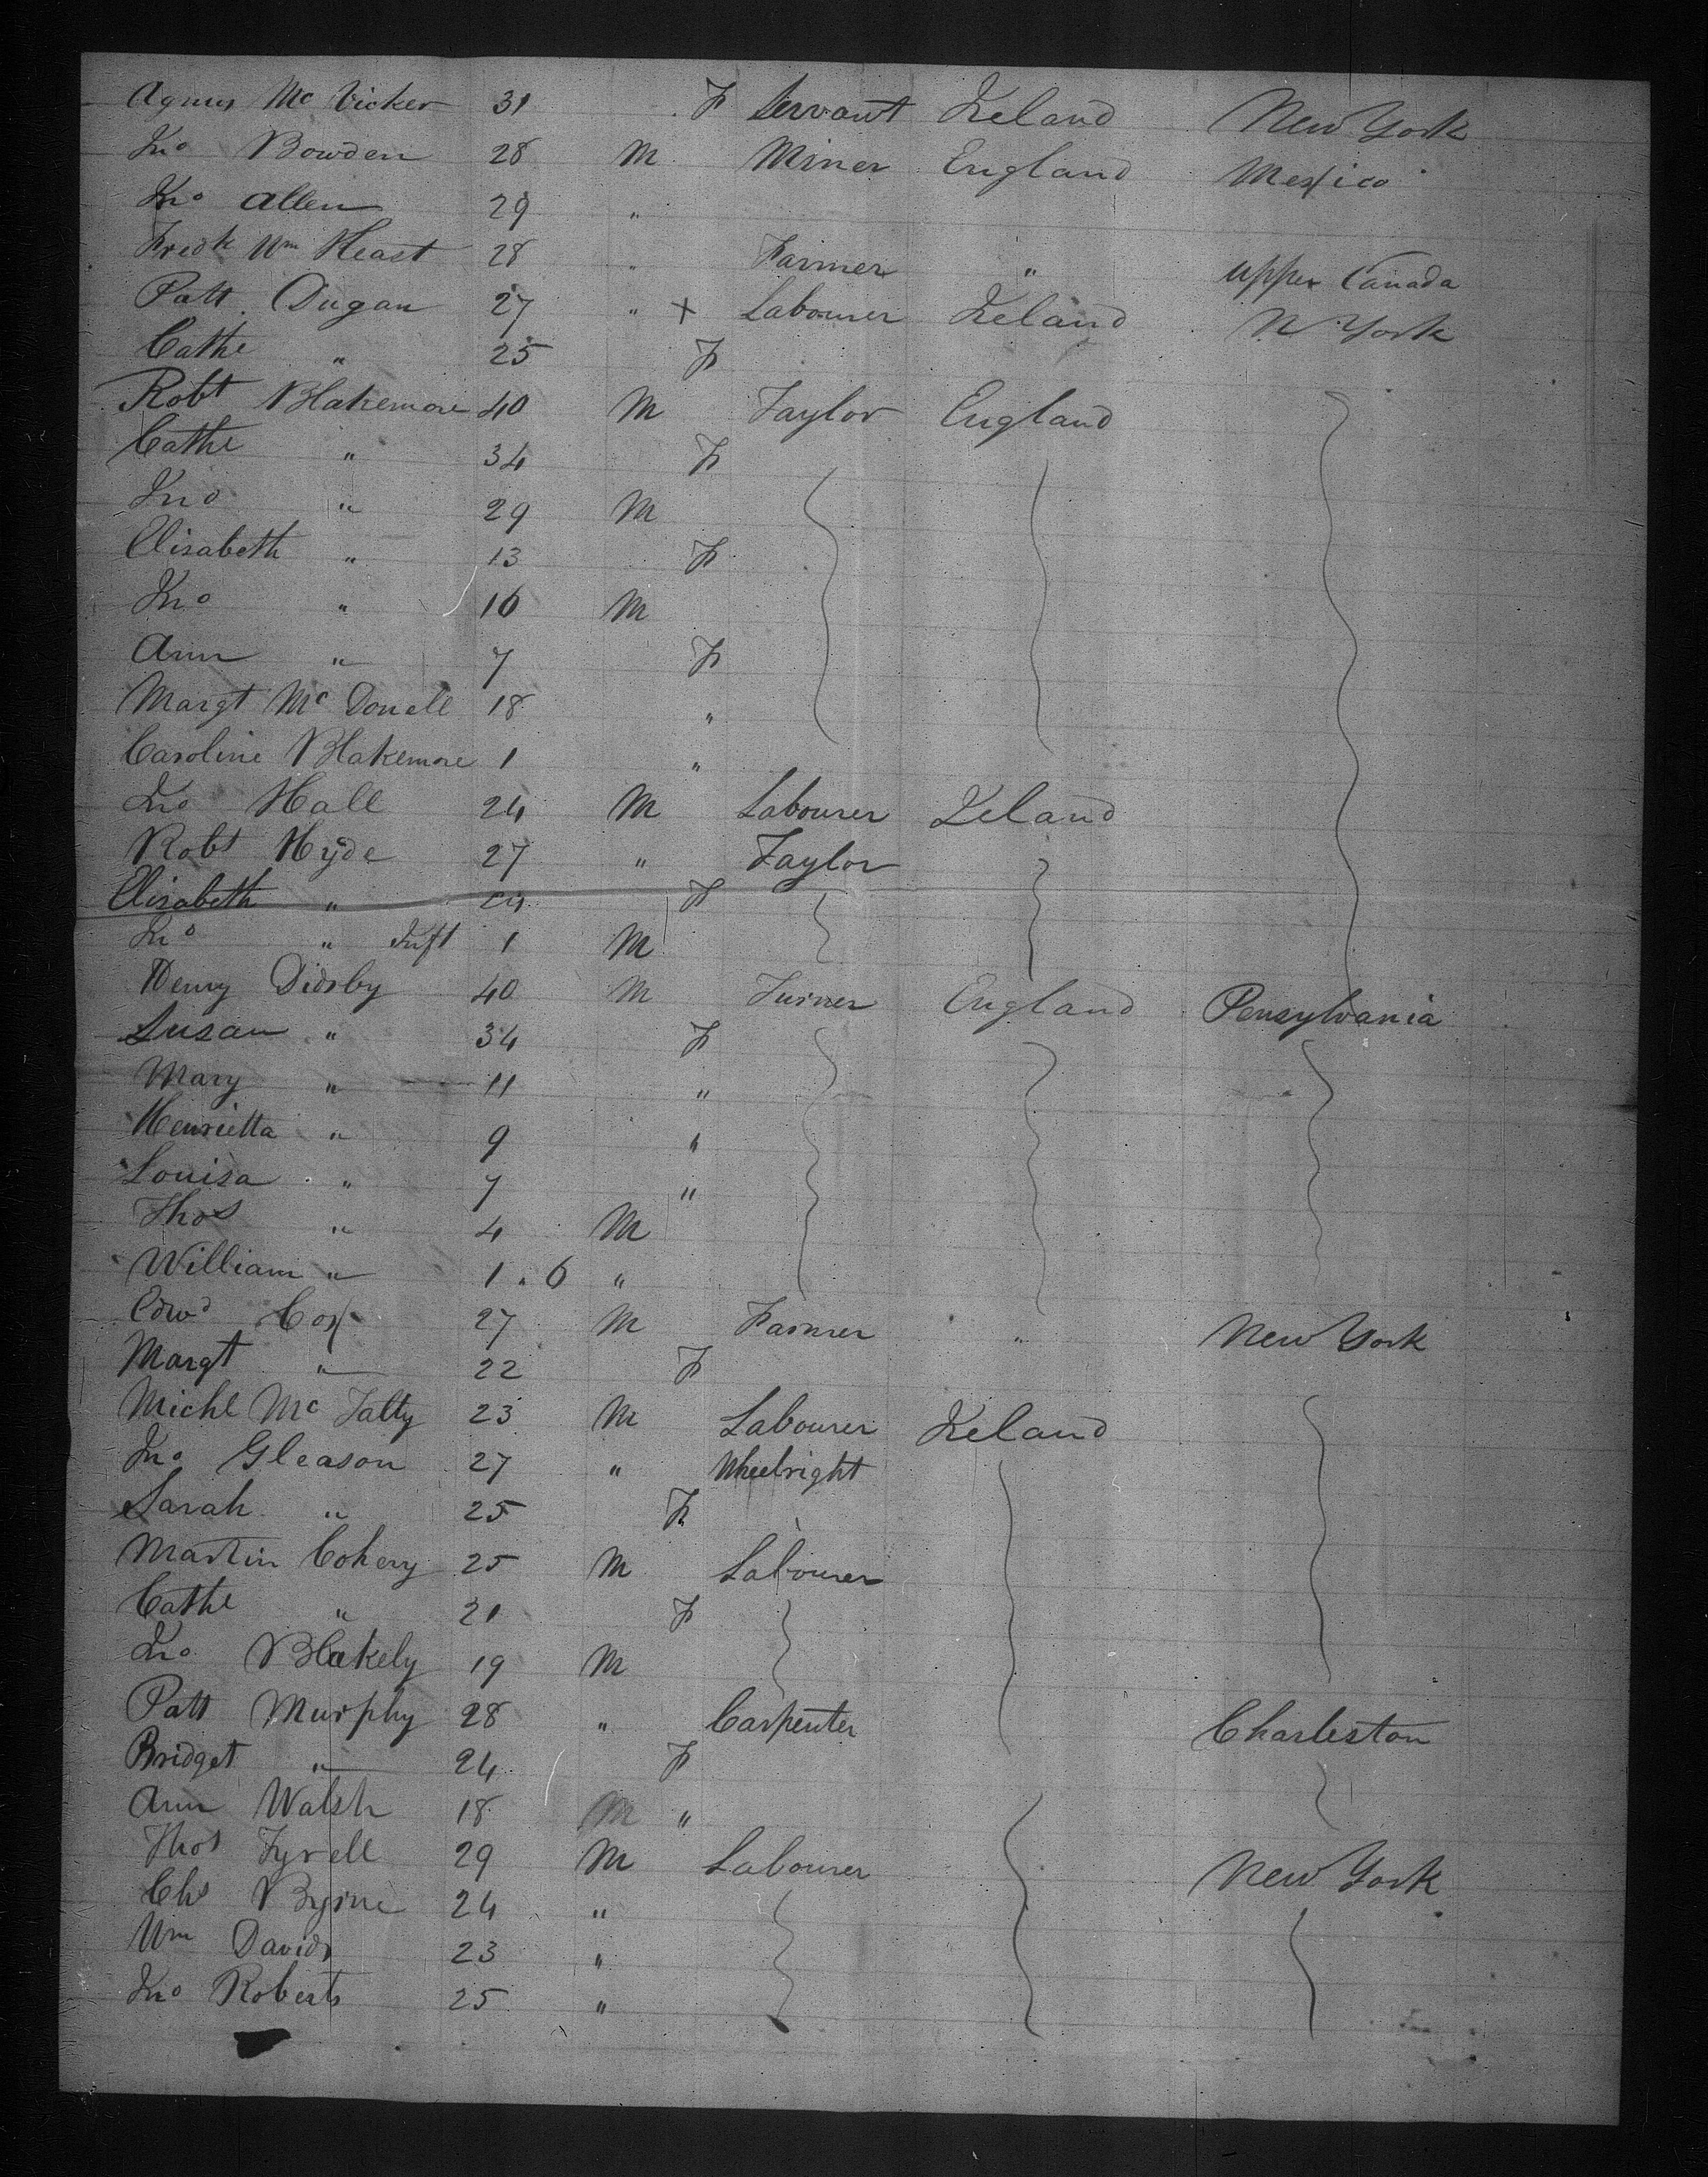 Agnus Mc Vicker 31 F Servant Ireland New York
Jno Bowden 28 M Miner England Mexico
Jno Allen 29 "
Fredk Wm Heast 28 " Farmer " Upper Canada
Patt Dugan 27 " + Labourer Ireland N York
Cathe " 25 F
Robt Blakemore 40 M Taylor England
Cathe " 34 F
Jno " 29 M
Elisabeth " 13 F
Jno " 16 M
Ann " 7 F
Margt Mc Donell 18 "
Caroline Blakemore 1 "
Jno Hall 24 M Labourer Ireland
Robt Hyde 27 " Taylor
Elisabeth " 24 F
Jno " Inft 1 M
Henry Didsby 40 M Turner England Pensylvania
Susan " 34 F
Mary " 11 "
Henrietta " 9 "
Louisa " 7 "
Thos " 4 M
William " 1 . 6 "
Edwd Cox 27 M Farmer " New York
Margt " 22 F
Michl Mc Talty 23 M Labourer Ireland
Jno Gleason 27 " Wheelright
Sarah " 25 F
Martin Cohery 25 M Labourer
Cathe " 21 F
Jno Blakely 19 M
Patt Murphy 28 " Carpenter Charleston
Bridget " 24 F
Ann Walsh 18 M "
Thos Tyrell 29 M Labourer New York
Chs Byrne 24 "
Wm Davids 23 "
Jno Roberts 25 "